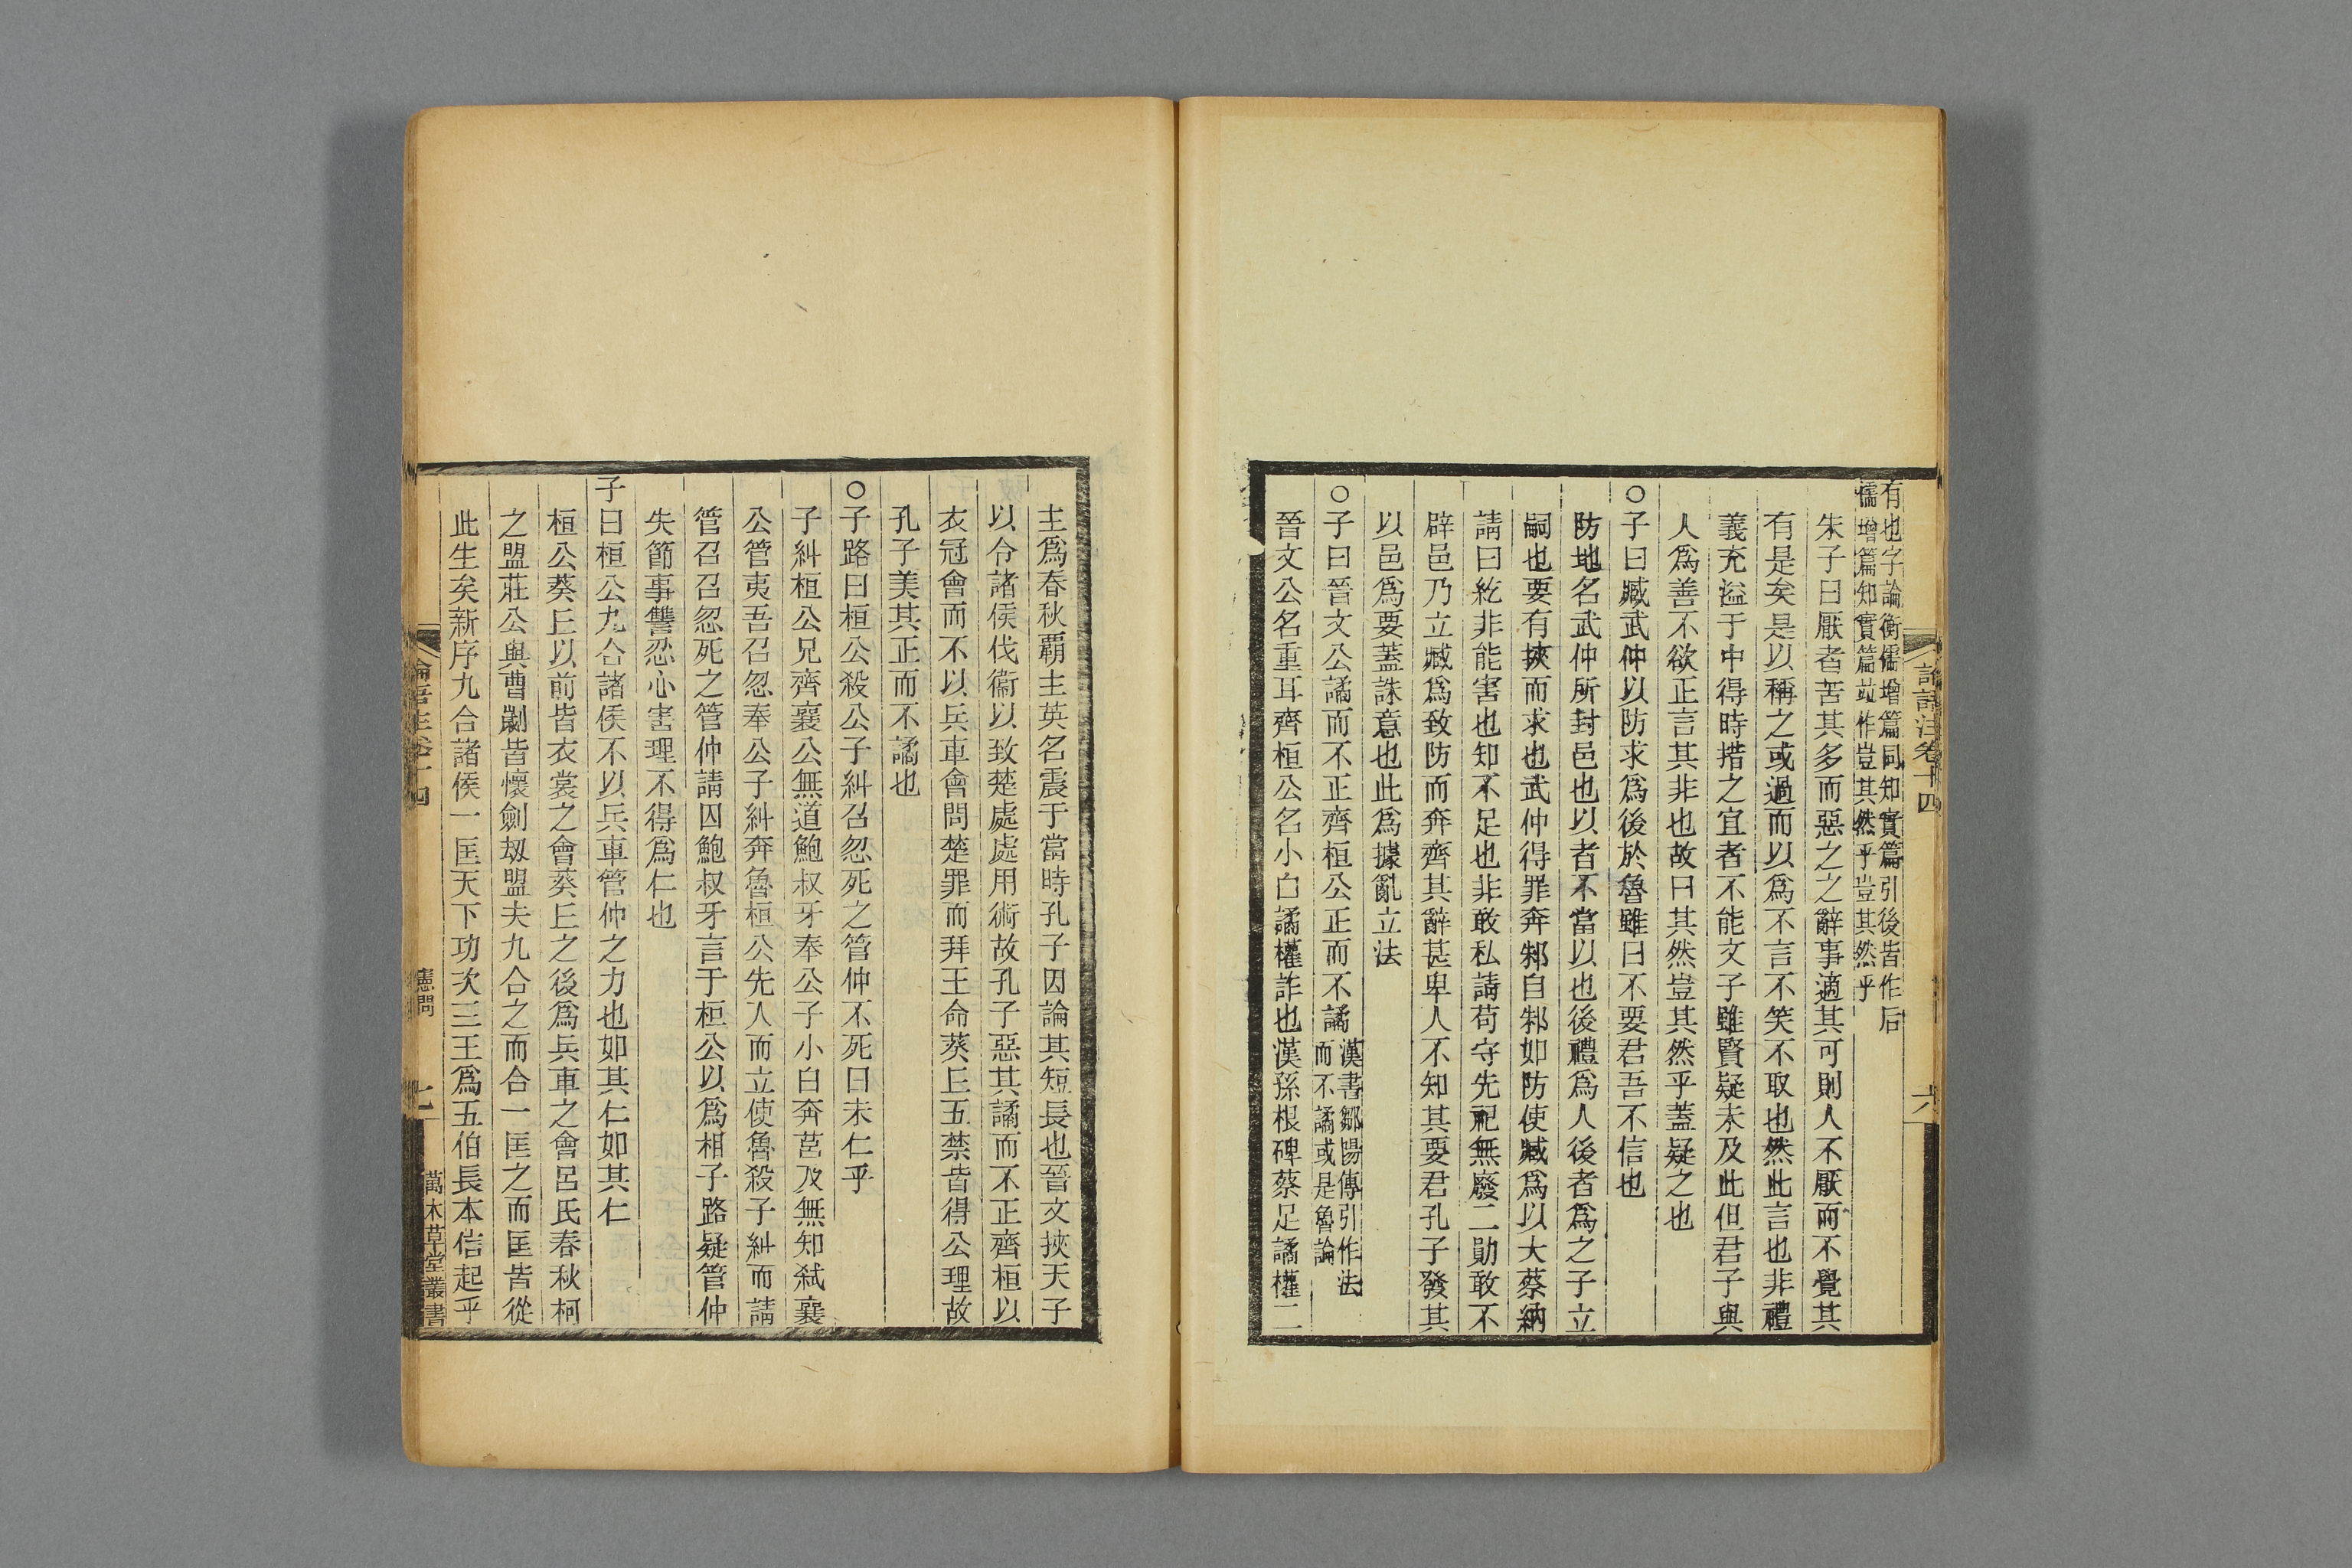 有也字論衡儒增篇同知實篇引後皆作后
儒增篇知實篇竝作豈其然乎豈其然乎
朱子曰厭者苦其多而惡之之辭事適其可則人不厭而不覺其
有是矣是以稱之或過而以爲不言不笑不取也然此言也非禮
義充溢于中得時措之宜者不能文子雖賢疑未及此但君子與
人爲善不欲正言其非也故曰其然豈其然乎蓋疑之也
○子曰臧武仲以防求爲後於魯雖曰不要君吾不信也
防地名武仲所封邑也以者不當以也後禮爲人後者爲之子立
嗣也要有挾而求也武仲得罪奔邾自邾如防使臧爲以大蔡納
請曰紇非能害也知不足也非敢私請苟守先祀無廢二勛敢不
辟邑乃立臧爲致防而奔齊其辭甚卑人不知其要君孔子發其
以邑爲要蓋誅意也此爲據亂立法
○子曰晉文公譎而不正齊桓公正而不譎
漢書鄒陽傳引作法
而不譎或是魯論
晉文公名重耳齊桓公名小白譎權詐也漢孫根碑蔡足譎權二
論語注卷十四
六
主爲春秋覇主英名震于當時孔子因論其短長也晉文挾天子
以令諸侯伐衞以致楚處處用術故孔子惡其譎而不正齊桓以
衣冠會而不以兵車會問楚罪而拜王命葵丘五禁皆得公理故
孔子美其正而不譎也
○子路曰桓公殺公子糾召忽死之管仲不死曰未仁乎
子糾桓公兄齊襄公無道鮑叔牙奉公子小白奔莒及無知弒襄
公管夷吾召忽奉公子糾奔魯桓公先入而立使魯殺子糾而請
管召召忽死之管仲請囚鮑叔牙言于桓公以爲相子路疑管仲
失節事讐忍心害理不得爲仁也
子曰桓公九合諸侯不以兵車管仲之力也如其仁如其仁
桓公葵丘以前皆衣裳之會葵丘之後爲兵車之會呂氏春秋柯
之盟莊公與曹劌皆懷劍刼盟夫九合之而合一匡之而匡皆從
此生矣新序九合諸侯一匡天下功次三王爲五伯長本信起乎
論語注卷十四
憲問
七
萬木草堂叢書